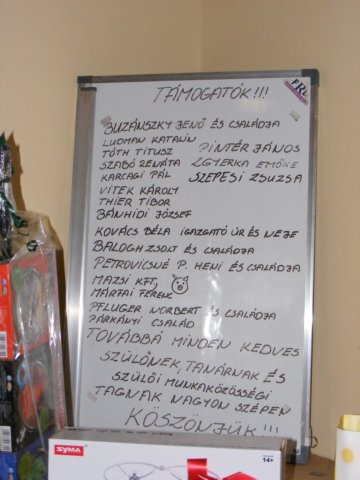 TÁMOGATÓK!!!
BUZÁNSZKY JENŐ ÉS CSALÁDJA
LUDMAN KATALIN
TÓTH TITUSZ PINTÉR JÁNOS
SZABÓ RENÁTA ZGYERKA EMŐKE
KARCAGI PÁL SZEPESI ZSUZSA
VITEK KÁROLY
THIER TIBOR
BÁNHIDI JÓZSEF
KOVÁCS BÉLA IGAZGATÓ ÚR ÉS NEJE
BALOGH ZSOLT ÉS CSALÁDJA
PETROVICSNÉ P. HENI ÉS CSALÁDJA
MAZSI KFT,
MÁRFAI FERENC
PFLUGER NORBERT ÉS CSALÁDJA
PÁRKÁNYI CSALÁD
TOVÁBBÁ MINDEN KEDVES
SZÜLŐNEK, TANÁRNAK ÉS
SZÜLŐI MUNKAKÖZÖSSÉGI
TAGNAK NAGYON SZÉPEN
KÖSZÖNJÜK!!!
SYMA
14+